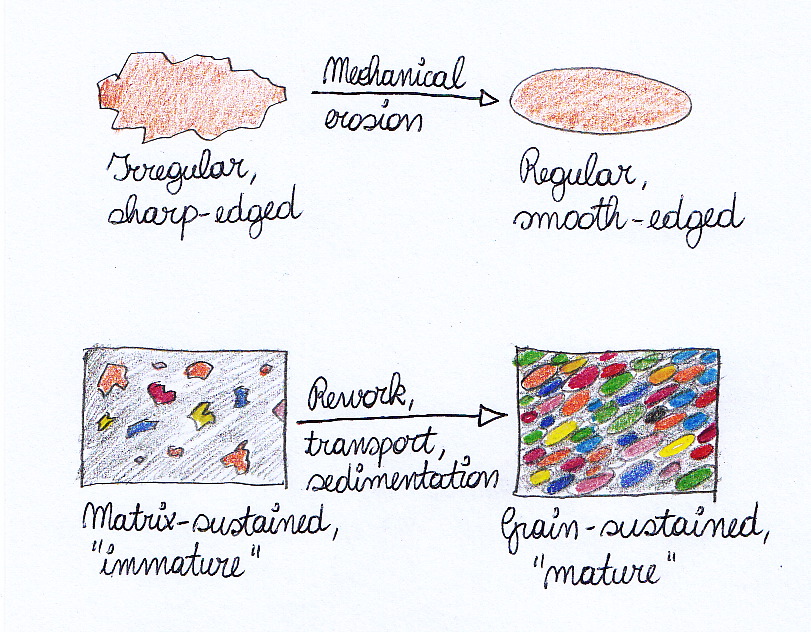 Mechanical
erosion
Irregular,
sharp-edged
Regular,
smooth-edged
Rework,
transport,
sedimentation
Matrix-sustained,
"immature"
Grain-sustained,
"mature"